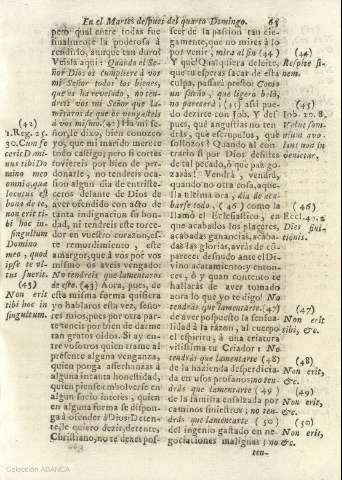 En el Martes despues del quarto Domingo. 65
pero qual entre todas fue
finalmente la poderosa á
rendirlo, aunque tan duro?
Veisla aqui: Quando el Se-
ñor Dios os cumpliere à vos
mi Señor todos los bienes,
que os ha revelado, no ten-
dreis vos mi Señor que la-
mentaros de que os vengasteis
à vos mismo. (42) Ha mi Se-
ñor, le dixo, bien conozco
yo, que mi marido merece
todo castigo; mas si corres
tuviereis por bien de per-
donarle, no tendreis oca-
sion algun dia de entriste-
ceros delante de Dios de
aver ofendido con acto de
tanta indignacion su bon-
dad, ni tendreis este torce-
dor en vuestro corazon, es-
te remordimiento, este
amargor, que à vos por vos
mismo os aveis vengado:
No tendreis que lamentaros
de esso. (43) Aora, pues, de
esta misma forma quisiera
yo hablaros esta vez, seño-
res mios, pues por otra par-
te teneis por bien de darme
tan gratos oidos. Si ay en-
tre vosotros quien trame al
presente alguna venganza,
quien ponga assechanzas à
alguna intacta honestidad,
quien piense embolverse en
algun sucio interés, quien
en alguna forma se dispon-
ga á ofender à Dios: Deten-
te, le quiero dezir, detente,
Christiano, no te dexes pos-
(42)
1. Reg. 25.
30. Cum fe-
cerit Domi-
nus tibi Do
mino meo
omnia, quæ
locutus est
bona de te,
non erit ti-
bi hoc in
singultum
Domino
meo, quod
ipse te ul-
tus fueris.
(43)
Non erit
tibi hoc in
singultum.
seer de la passion tan cie-
gamente, que no mires à lo
por venir, mira al fin (44)
Y què? Qualquiera deleite,
que tu esperas sacar de esta
culpa, passará presto: Como
un sueño, que ligero bolò,
no parecerá; (45) assi pue-
do dezirte con Job. Y des-
pues, què angustias no ten-
drás, què escrupulos, què
sollozos? Quando al con-
trario si por Dios desistes
de tal pecado, ò què paz go-
zaràs! Vendrá, vendrá,
quando no otra cosa, aque-
lla ultima ora, dia de aca-
barse todo, (46) como la
llamò el Eclesiastico, en
que acabados los placeres,
acabadas ganancias, acaba-
das las glorias, avràs de có-
parecer desnudo ante el Di-
vino acatamiento; y enton-
ces, ò y quan contento te
hallaràs de aver tomado
aora lo que yo te digo! No
tendràs que lamentarte. (47)
de aver pospuesto la sensua-
lidad à la razon, al cuerpo
el espiritu, à una criatura
vilissima tu Criador: No
tendràs que lamentarte (48)
de la hazienda desperdicia-
da en usos profanos; no ten-
dràs que lamentarte (49)
de la familia ensalzada por
caminos siniestros; no ten-
dràs que lamentarte (50)
del ingenio gastado en ne-
gociaciones malignas; no
ten-
(44)
Respice fi-
nem.
(45)
Job. 20. 8.
Velut som-
nium avo-
lans non in
venietur.
(46)
Eccl. 40. 2
Dies finі-
tionis.
(47)
Non erit
tibi, &c.
(48)
Non erit,
&c.
(49)
Non erit,
&c.
(50)
Non erit,
&c.
Colección ABANCA